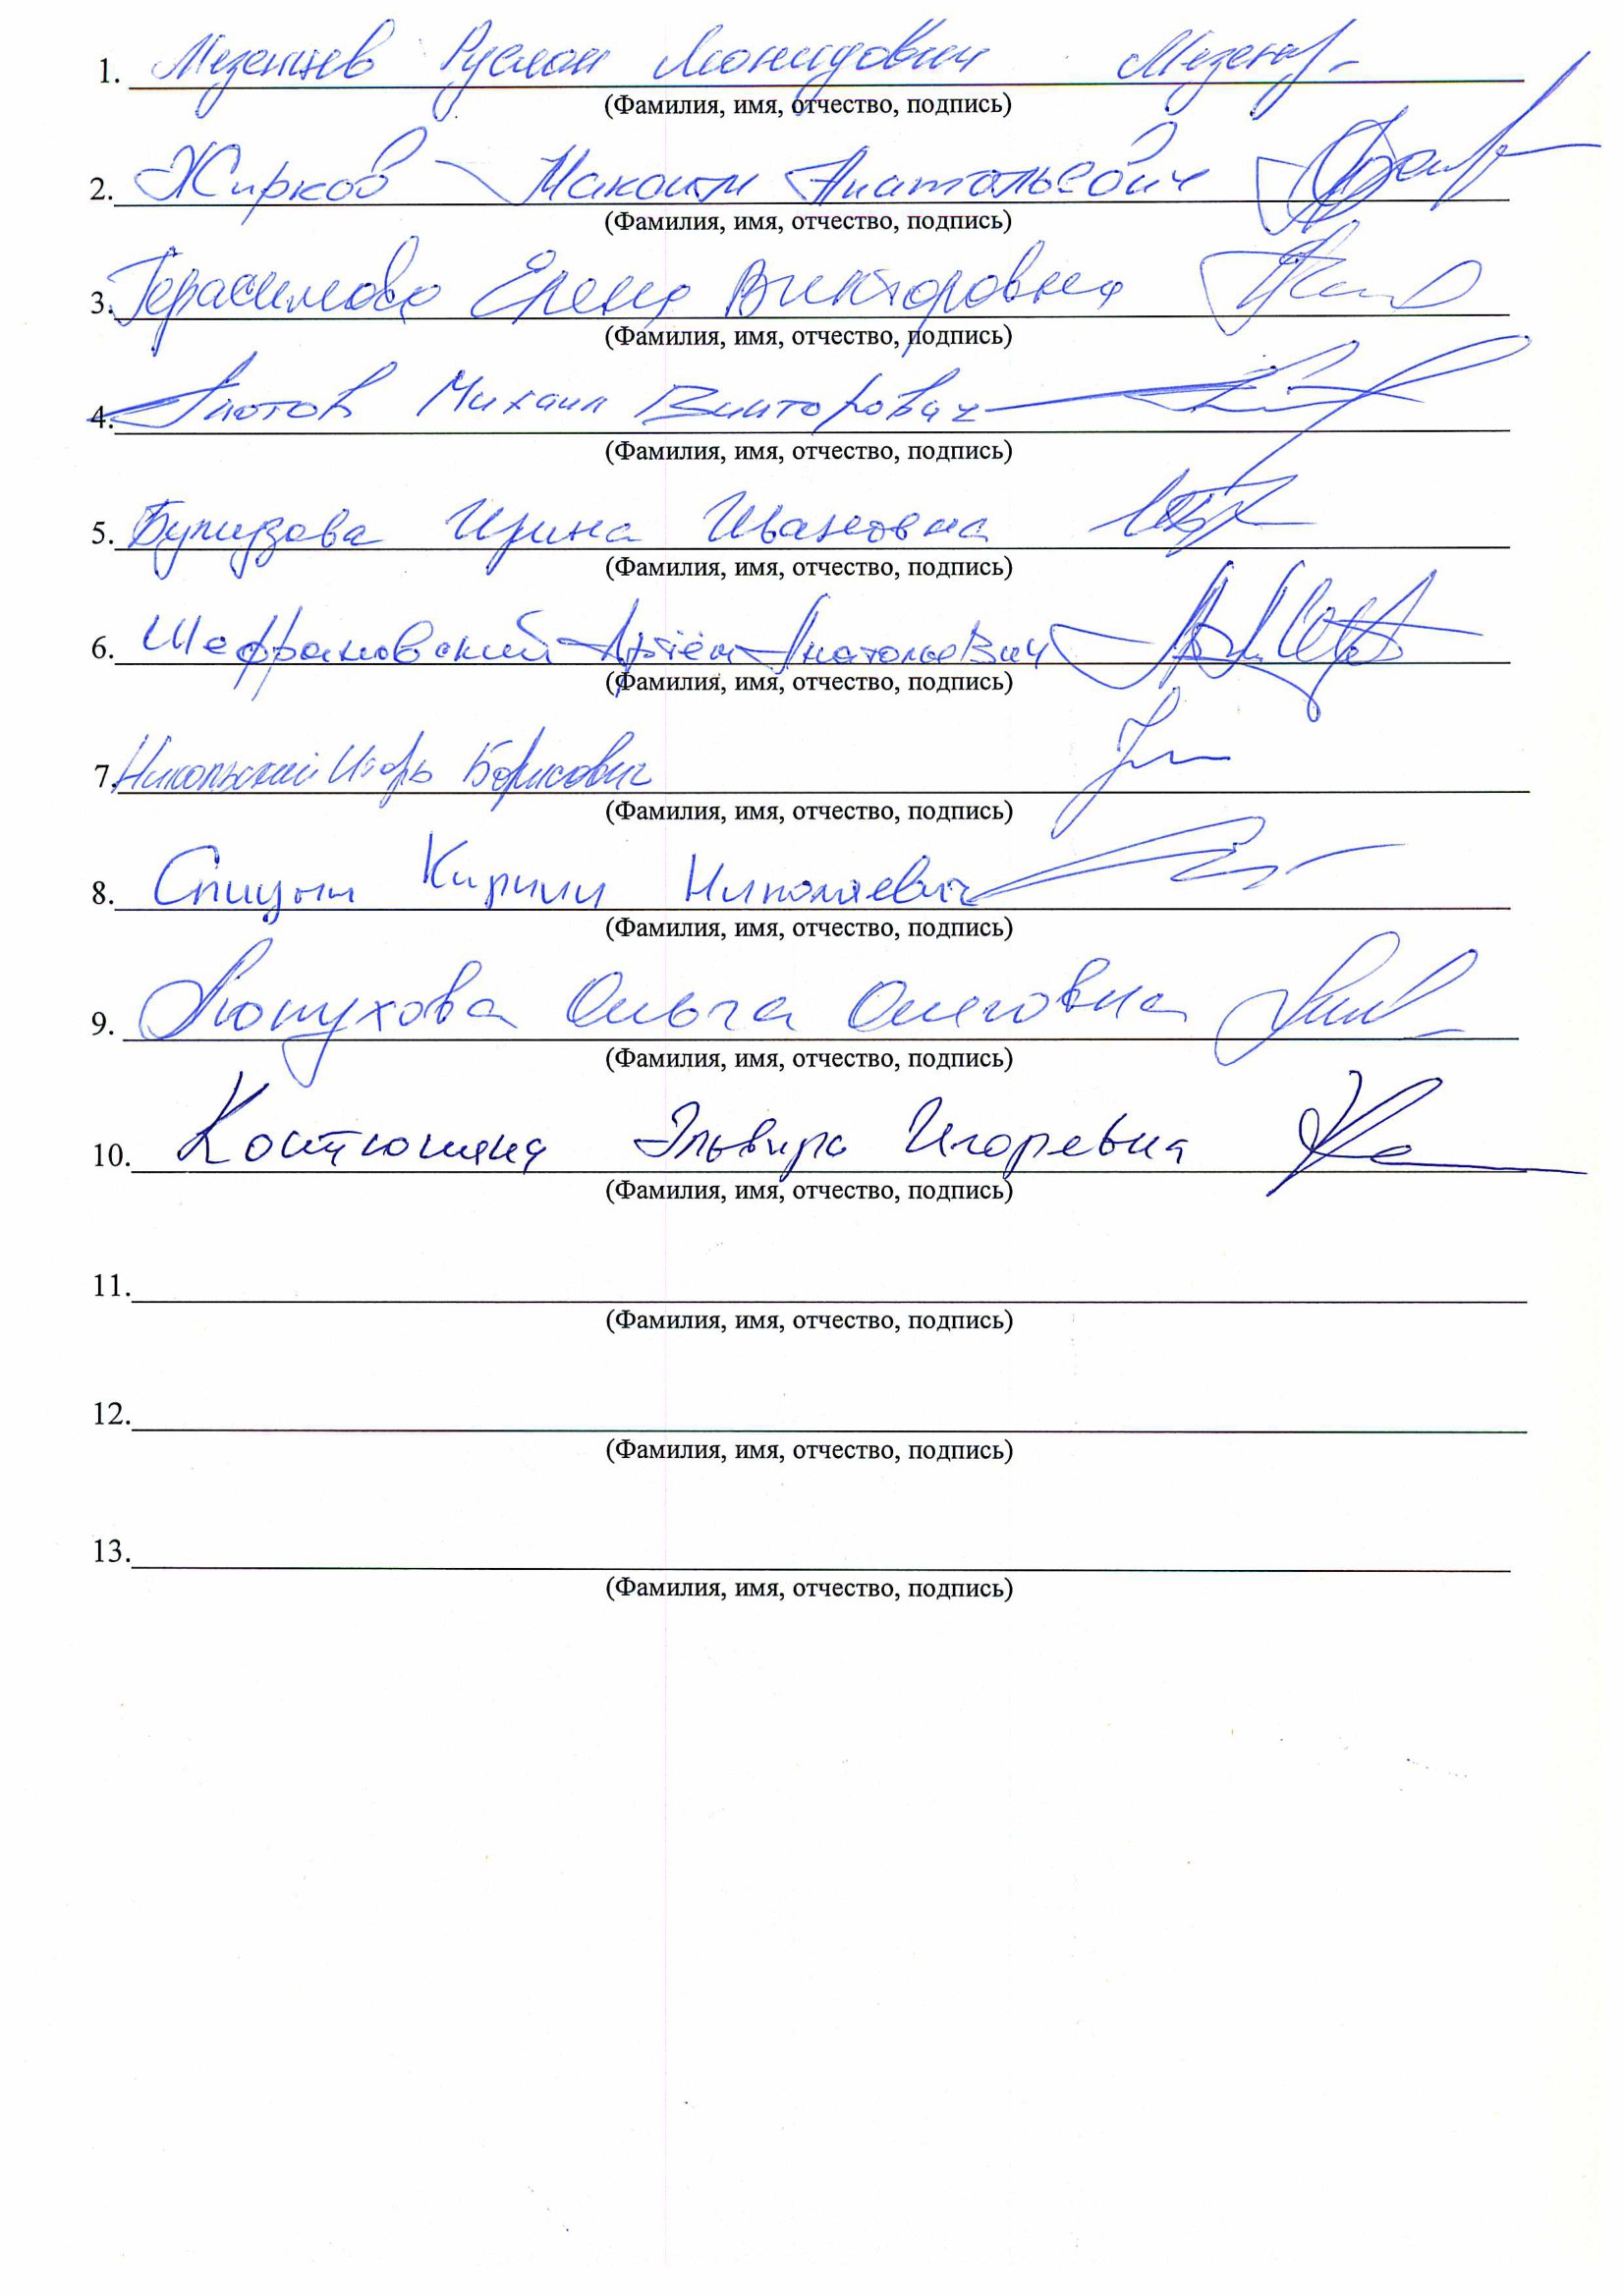 1. Мезенцев Руслан Леонидович
(Фамилия, имя, отчество, подпись)
2. Жирков Максим Анатольевич
(Фамилия, имя, отчество, подпись)
3. Герасимова Елена Викторовна
(Фамилия, имя, отчество, подпись)
4. Лютов Михаил Викторович
(Фамилия, имя, отчество, подпись)
5. Ирина Ивановна
(Фамилия, имя, отчество, подпись)
6. Шафрановский Артём Анатольевич
(Фамилия, имя, отчество, подпись)
7. Никольский Игорь Борисович
(Фамилия, имя, отчество, подпись)
8. Спицын Кирилл Николаевич
(Фамилия, имя, отчество, подпись)
9. Ольга Олеговна
(Фамилия, имя, отчество, подпись)
10. Эльвира Игоревна
(Фамилия, имя, отчество, подпись)
11.
(Фамилия, имя, отчество, подпись)
12.
(Фамилия, имя, отчество, подпись)
13.
(Фамилия, имя, отчество, подпись)